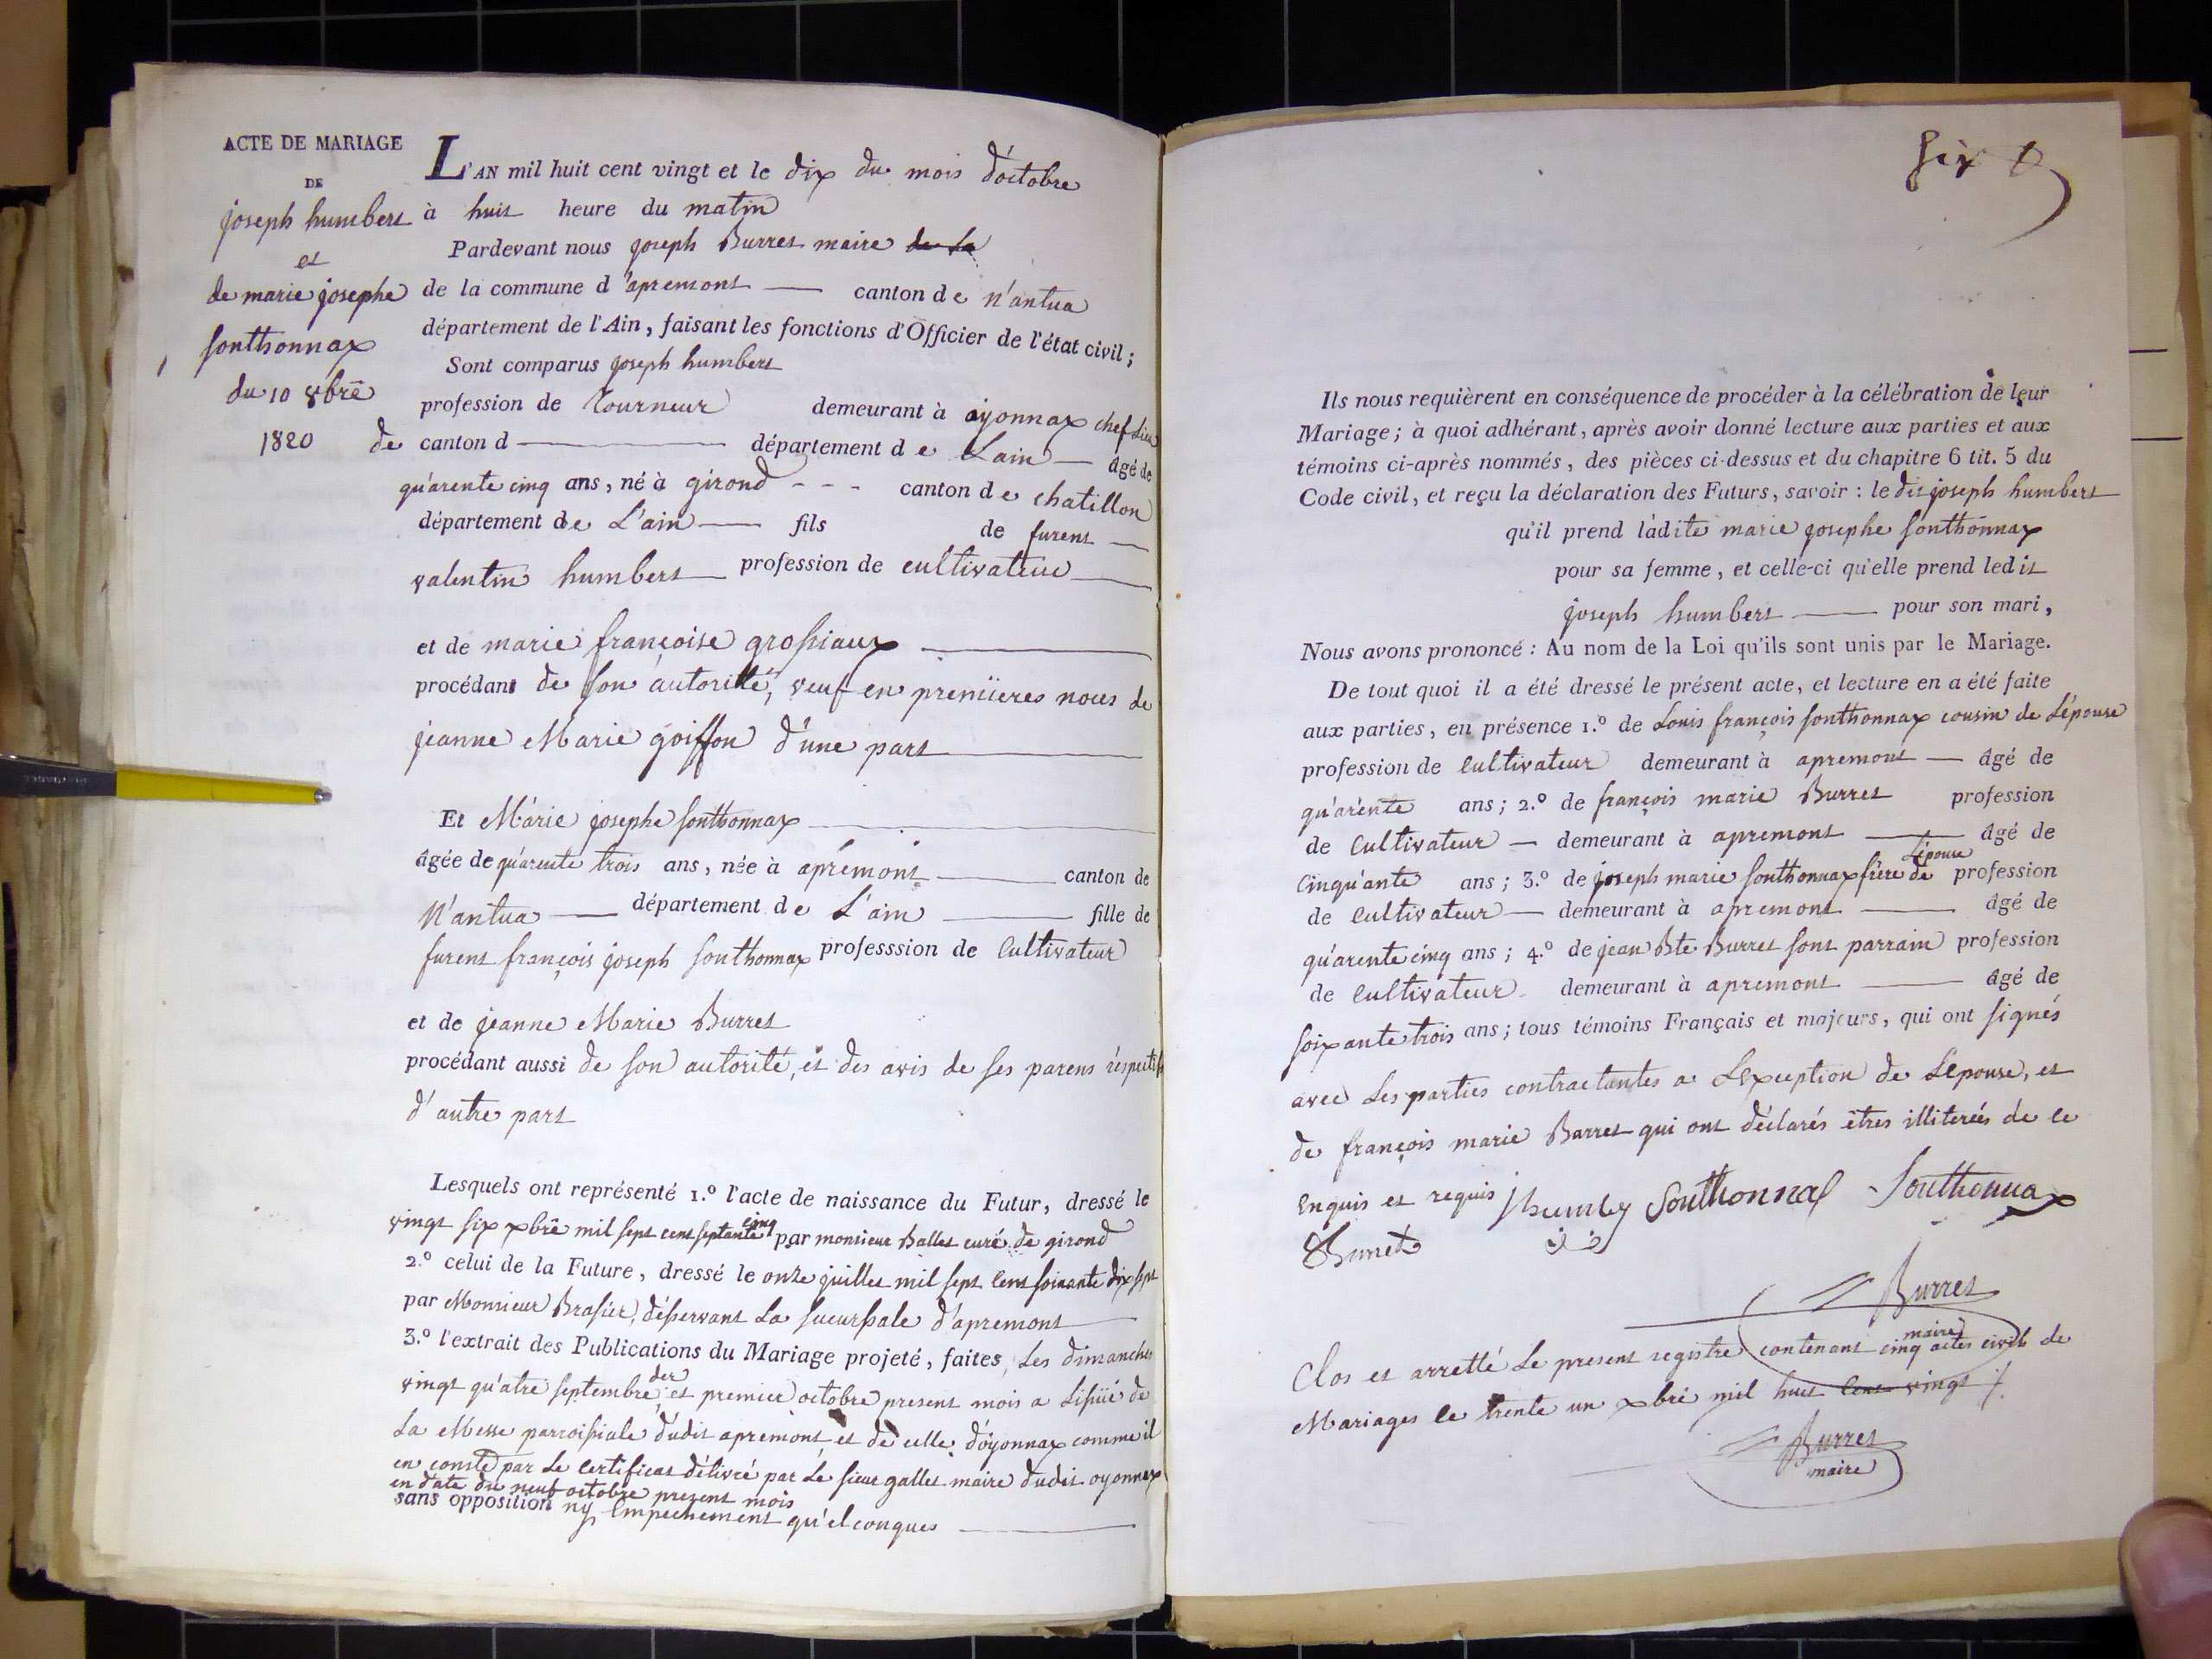 ACTE DE MARIAGE
DE
joseph humbert
et
de marie josephe
sonthonnax
du 10 8bre
1820
L'AN mil huit cent vingt et le dix du mois d'octobre
à huit heure du matin
Pardevant nous joseph Burret maire de la
de la commune d'apremont — canton de n'antua
département de l'Ain, faisant les fonctions d'Officier de l'état civil;
Sont comparus joseph humbert
profession de Tourneur demeurant à oyonnax chef Lieu
de canton d — département de Lain — âgé de
qu'arente cinq ans, né à girond - - - canton de chatillon
département de L'ain — fils de furent —
valentin humbert — profession de cultivateur —
et de marie françoise grossiaux —
procédant de son autorité, veuf en premiieres noces de
jeanne Marie goiffon d'une part —
Et Marie josephe sonthonnax —
âgée de qu'arente trois ans, née à apremont — canton de
N'antua — département de L'ain — fille de
furent françois joseph sonthonnax professsion de Cultivateur
et de jeanne Marie Burret
procédant aussi de son autorité, et des avis de ses parens réspectifs
d'autre part
Lesquels ont représenté 1.º l'acte de naissance du Futur, dressé le
vingt six xbre mil sept cent septante cinq par monsieur Ballet curé de girond
2.º celui de la Future, dressé le onze juillet mil sept Cent soixante dix sept
par Monsieur Brasier, déservant La sucursale d'apremont —
3.º l'extrait des Publications du Mariage projeté, faites, Les dimanches
vingt qu'atre septembre der et premier octobre present mois a Lissüe de
La Messe parroissiale dudit apremont et de celle d'oyonnax comme il
en conste par Le Certificat délivré par Le sieur gallet maire dudit oyonnax
en date du neuf octobre present mois
sans opposition ny Empechement qu'elconques —
six
Ils nous requièrent en conséquence de procéder à la célébration de leur
Mariage; à quoi adhérant, après avoir donné lecture aux parties et aux
témoins ci-après nommés, des pièces ci-dessus et du chapitre 6 tit. 5 du
Code civil, et reçu la déclaration des Futurs, savoir: le dit joseph humbert
qu'il prend ladite marie josephe sonthonnax
pour sa femme, et celle-ci qu'elle prend ledit
joseph humbert — pour son mari,
Nous avons prononcé: Au nom de la Loi qu'ils sont unis par le Mariage.
De tout quoi il a été dressé le présent acte, et lecture en a été faite
aux parties, en présence 1.º de Louis françois sonthonnax cousin de L'épouse
profession de Cultivateur demeurant à apremont — âgé de
qu'arente ans; 2.º de françois marie Burret profession
de Cultivateur — demeurant à apremont — âgé de
Cinqu'ante ans; 3.º de joseph marie sonthonnax frere de L'épouse profession
de Cultivateur — demeurant à apremont — âgé de
qu'arente cinq ans; 4.º de jean Bte Burret sont parrain profession
de Cultivateur demeurant à apremont — âgé de
soixante trois ans; tous témoins Français et majeurs, qui ont signés
avec Les parties contractantes a Lexception de Lepouse, et
de françois marie Barret qui ont déclarés êtres illiterés de ce
Enquis et requis Jhumber Sonthonnax Sonthonnax
Burret
maire
Clos et arretté Le present registre contenant cinq actes civils de
Mariages le trente un xbre mil huit Cent vingt
Burret
maire